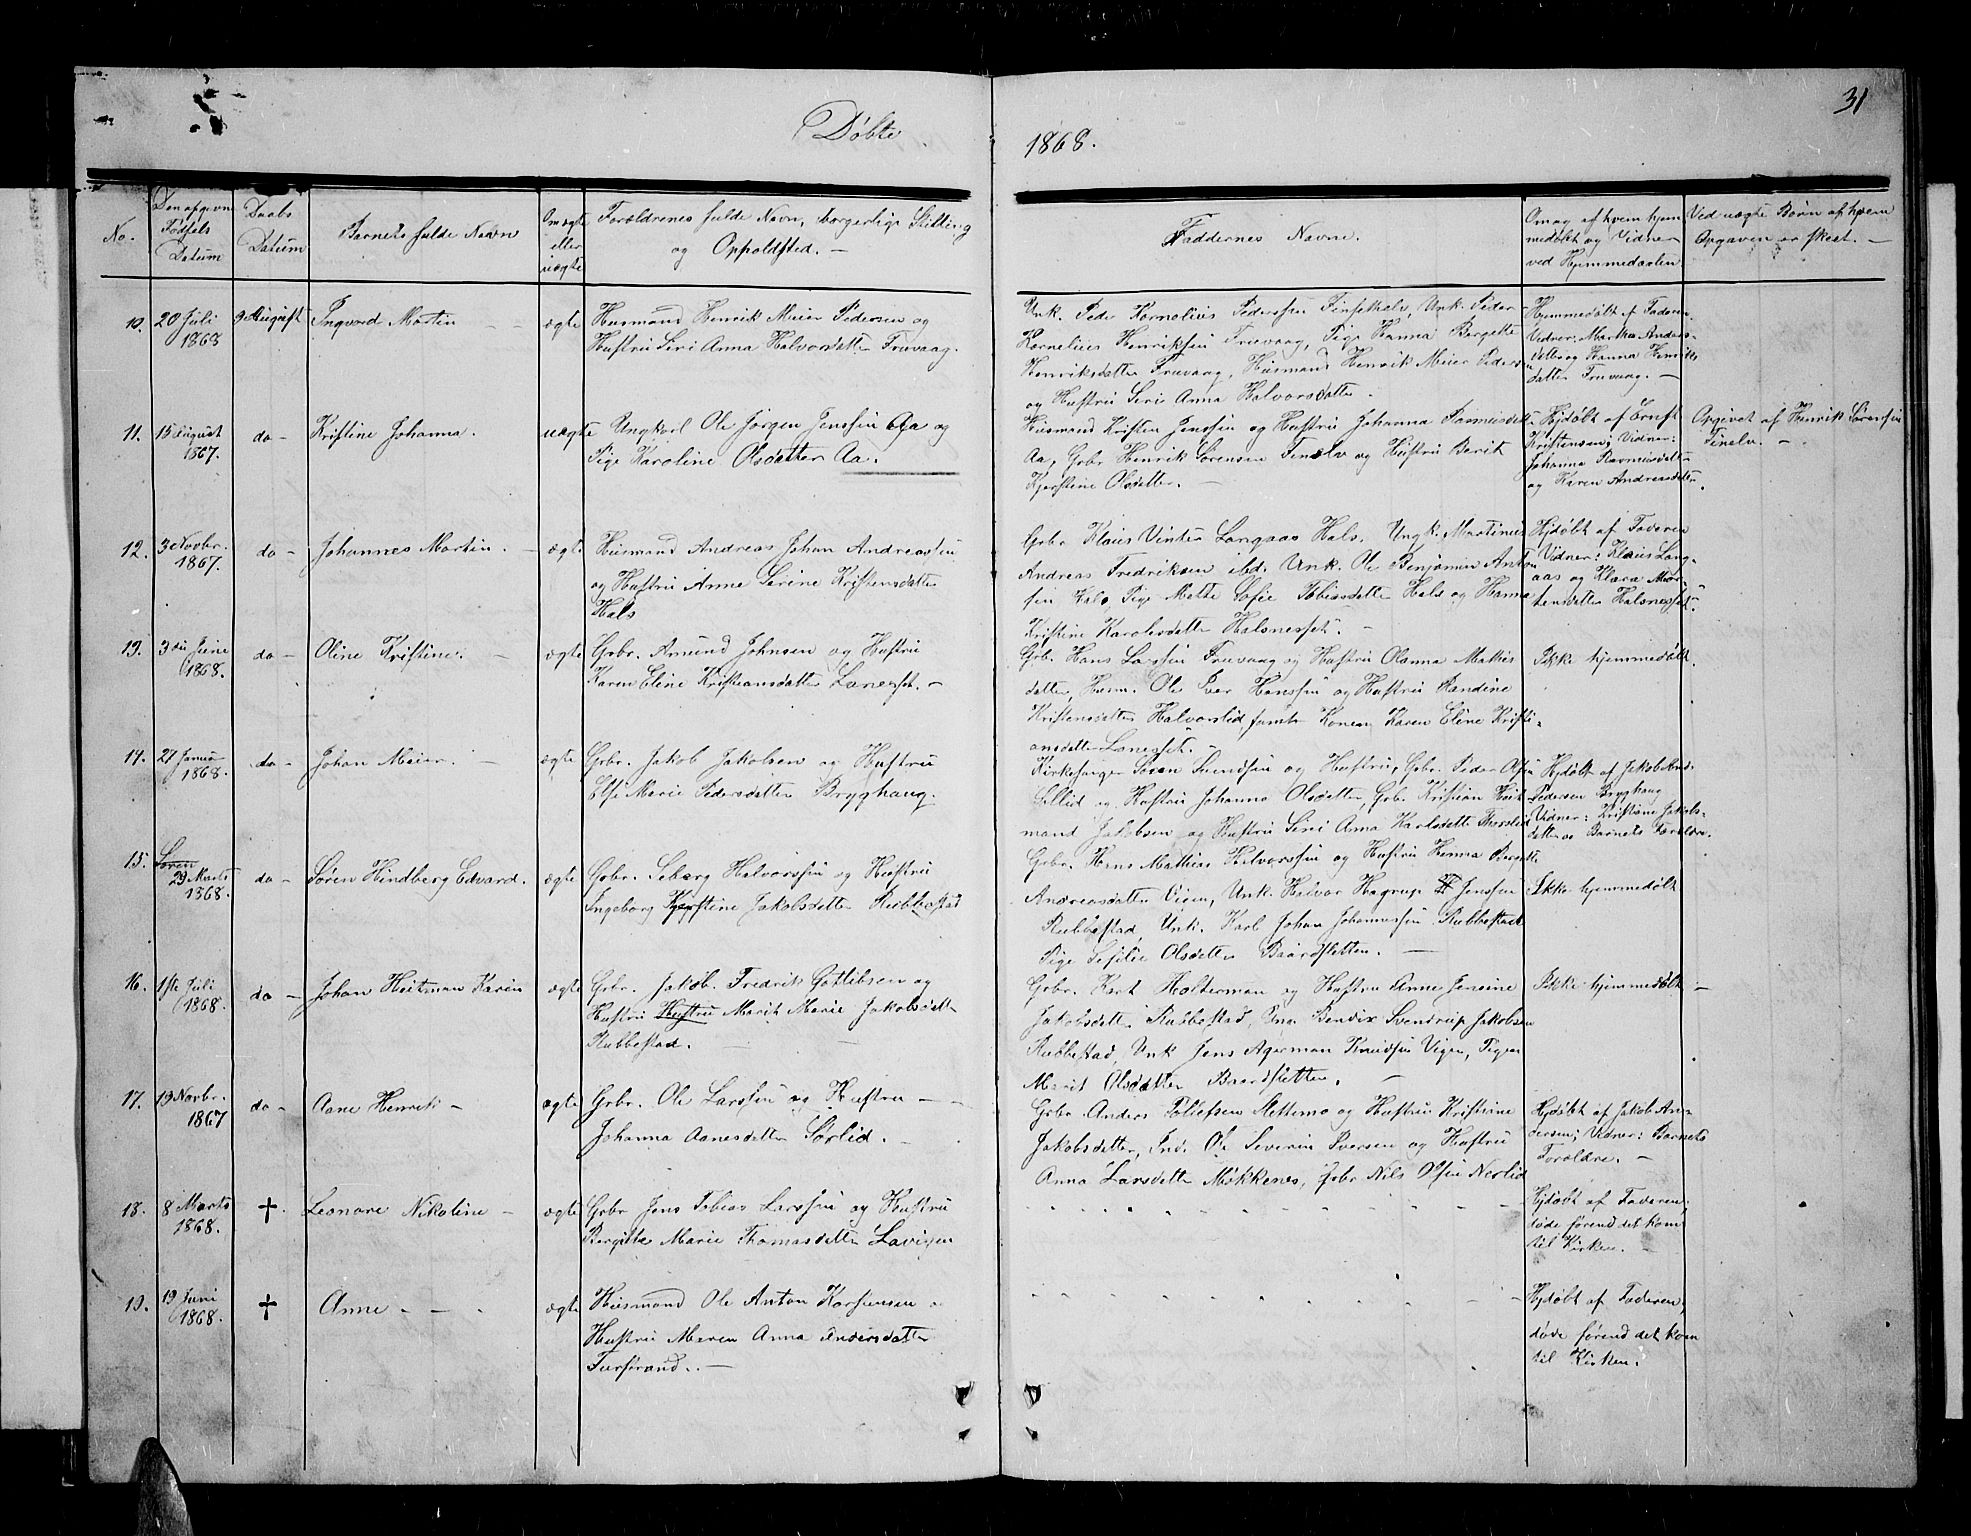 31
Döbte
1868.
No.
Den opgivne
Födsels
Datum
Daabs
Datum
Barnets fulde Navn
Om ægte
eller
uægte
Forældrenes fulde Navn, borgerlige Stilling
og Opholdsted. –
Faddernes Navne.
Om og af hvem hjem
medöbt og Vidner
ved Hjemmedaaben
Ved uægte Börn af hvem
Opgaven er skeet. –
10. 20 Juli
1868
9 August
Ingvard Martin
ægte
Husmand Henrik Meier Pedersen og
Hustru Siri Anna Halvorsdatter Trovaag.
Unk. Peder Kornelius Pederssen Finsethalv, Unk. Peder
Kornelius Henriksen Trovaag, Pige Hanna Bergitte
Henriksdatter Trovaag, Husmand Henrik Meier Pedersen
og Hustru Siri Anna Halvorsdatter.
Hjemmedöbt af Faderen.
Vidner: Martha Anders-
datter og Hanna Henriks
datter Trovaag. –
11. 15 August
1867.
do –
Kristine Johanna.
uægte
Ungkarl Ole Jörgen Jenssen Aa og
Pige Karoline Olsdatter Aa.
Husmand Kristen Jenssen og Hustru Johanna Rasmusdatt
Aa, Grbr Henrik Sörensen Finelv og Hustru Berit
Kjerstine Olsdatter. –
Hjdöbt af Ernst
Kristensen; Vidner:
Johanna Rasmusdatter
og Karen Andreasdatter.
Opgivet af Henrik Sörenssen
Finelv. –
12. 3 Novbr.
1867.
do –
Johannes Martin.
ægte
Husmand Andreas Johan Andreassen
og Hustru Anne Serine Kristensdatter
Hals
Grbr Klaus Vinter Langaas Hals. Ungk. Martinus
Andreas Fredriksen ibd. Unk. Ole Benjamin Anton
sen Hals, Pige Mette Sofie Tobiasdatter Hals og Hanna
Kristine Karolisdatter Halsnesset. –
Hjdöbt af Faderen
Vidner: Klaus Lang-
aas og Klara Mor-
tensdatter Halsnesset.
13. 3die Juni
1868.
do –
Oline Kristine.
ægte
Grbr. Amund Johnsen og Hustru
Karen Eline Kristiansdatter Lanesset. –
Grb. Hans Larssen Trovaag og Hustru Olanna Mathis
datter, Husm. Ole Iver Hanssen og Hustru Randine
Kristensdatter Halvorslid samt Konen Karen Eline Kristi-
ansdatter Lanesset. –
Ikke hjemmedöbt.
14. 27 Januar
1868.
do –
Johan Meier.
ægte
Grbr. Jakob Jakobsen og Hustru
Else Marie Pedersdatter Bryghaug.
Kirkesanger Sören Svendsen og Hustru, Grbr. Peder Olsen
og Hustru Johanna Olsdatter, Grb. Kristian Heit
mand Jakobsen og Hustru Siri Anna Karlsdatter
Hjdöbt af Jakob And.
Pedersen Bryghaug
Vidner: Kristiane Jakobs-
datter og Barnets Forældre.
15. Sören
29 Marts
1868.
do –
Sören Hindberg Edvard.
ægte
Grbr. Seberg Halvorssen og Hustru
Ingeborg Kjerstine Jakobsdatter Rubbestad
Grbr. Hans Mathias Halvorssen og Hustru Hanna Bergitte
Andreasdatter Vigen, Unk. Halvor Hagrup Jenssen
Rubbestad, Unk. Karl Johan Johannessen Rubbestad
Pige Sesilie Olsdatter Baardsletten. –
Ikke hjemmedöbt
16. 1ste Juli
1868.
do –
Johan Heitman Karius
ægte
Grbr. Jakob Fredrik Gotlibsen og
Hustru Hustru Marit Marie Jakobsdatter
Rubbestad. –
Grbr. Kort Holterman og Hustru Anne Jensine
Jakobsdatter Rubbestad, Bendix Svendrup Jakobsen
Rubbestad, Unk Jens Agerman Knudsen Vigen, Pigen
Marit Olsdatter Baardsletten. –
Ikke hjemmedöbt –
17. 19 Novbr.
1867
do –
Aane Henrik –
ægte
Grbr. Ole Larssen og Hustru –
Johanna Aanesdatter Sörlid. –
Grbr Anders Tollefsen Mettemo og Hustru Kristine
Jakobsdatter, Ind. Ole Severin Iversen og Hustru
Anna Larsdatter Mökkenes, Grbr Nils Olsen Nerlid
Hjdöbt af Jakob An-
dersen; Vidner: Barnets
Forældre. –
18. 8 Marts
1868.
†.
Leonore Nikoline –
ægte
Grbr Jens Tobias Larssen og Hustru
Bergitte Marie Thomasdatter Lavigen
Hjdöbt af Faderen,
döde förend det kom
til Kirken. –
19. 19 Juni
1868.
†
Anne – – .
ægte
Husmand Ole Anton Korsiussen o
Hustru Maren Anna Andersdatter
Furstrand. –
Hjdöbt af Faderen,
döde förend det kom
til Kirken.